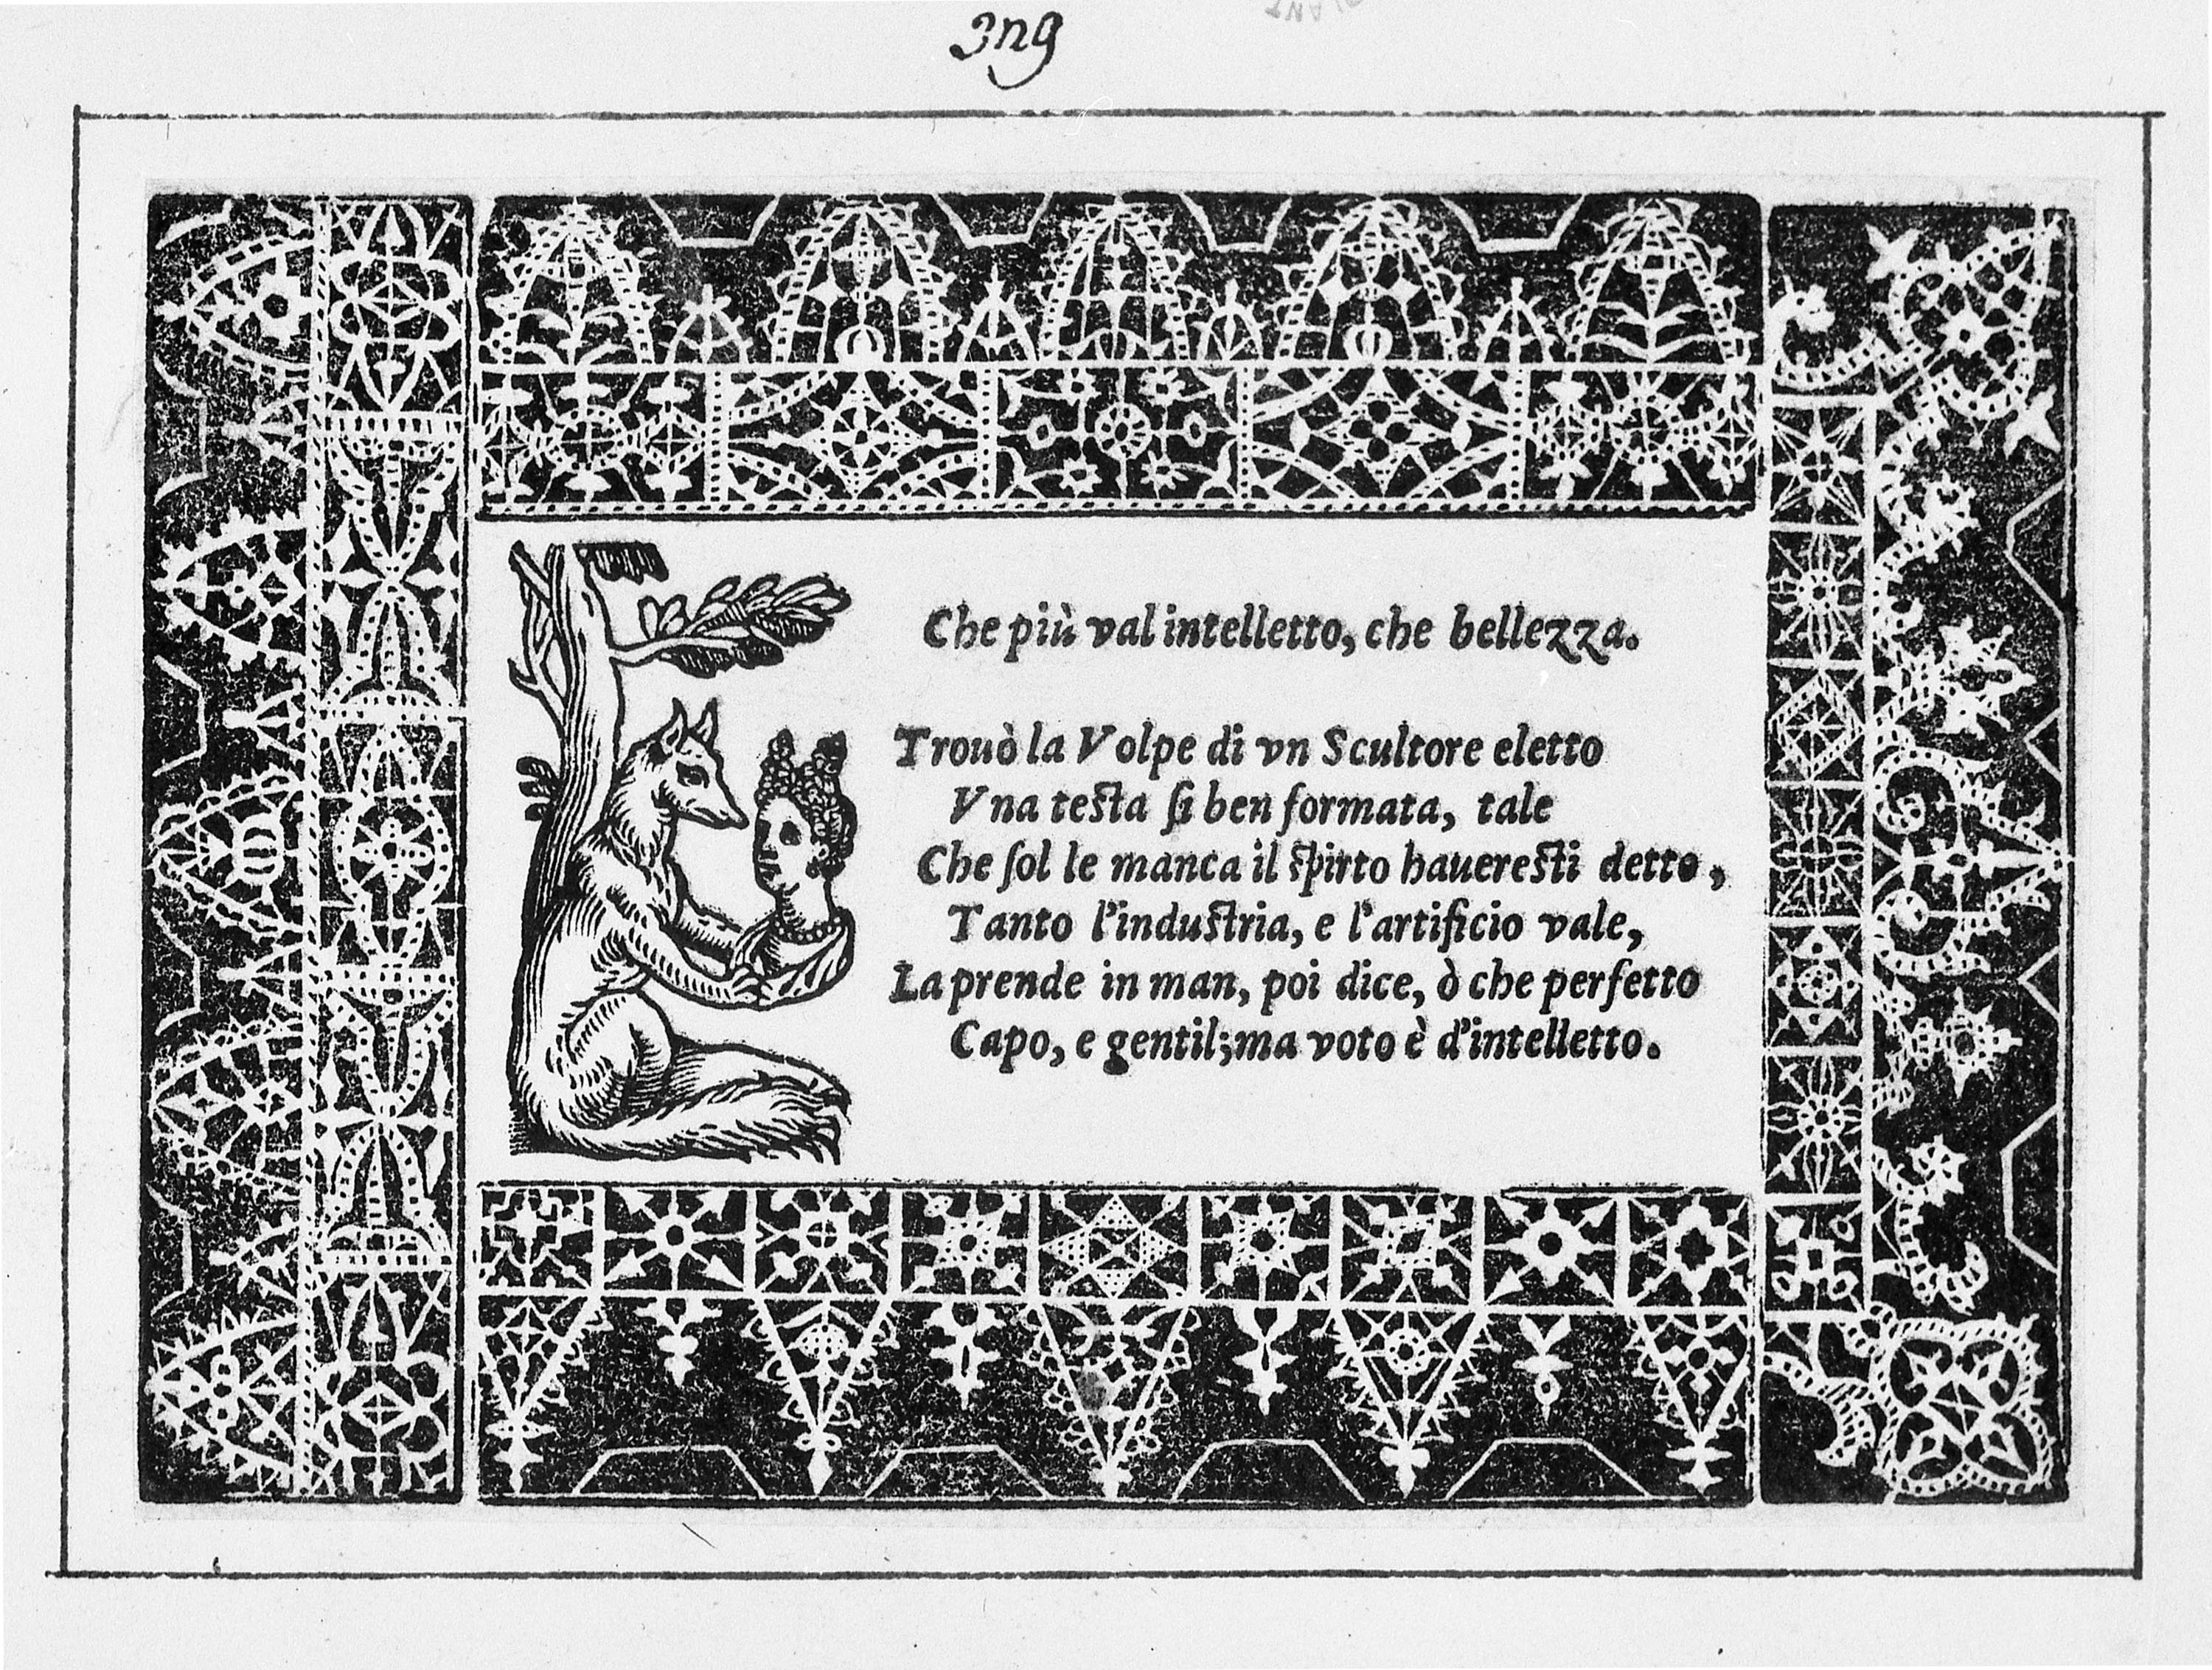 3n9
Che più val intelletto, che bellezza.
Trouò la Volpe di vn Scultore eletto
Vna testa sì ben formata, tale
Che sol le manca il spirto haueresti detto,
Tanto l'industria, e l'artificio vale,
La prende in man, poi dice, ò che perfetto
Capo, e gentil; ma voto è d'intelletto.